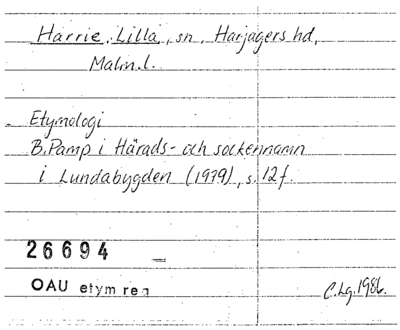 Harrie, Lilla, sn, Harjagers hd,
Malm.l.
Etymologi
B. Pamp i Härads- och sockennamn
i Lundabygden (1979), s. 12 f.
26694
OAU etym reg
C.Lg. 1986.